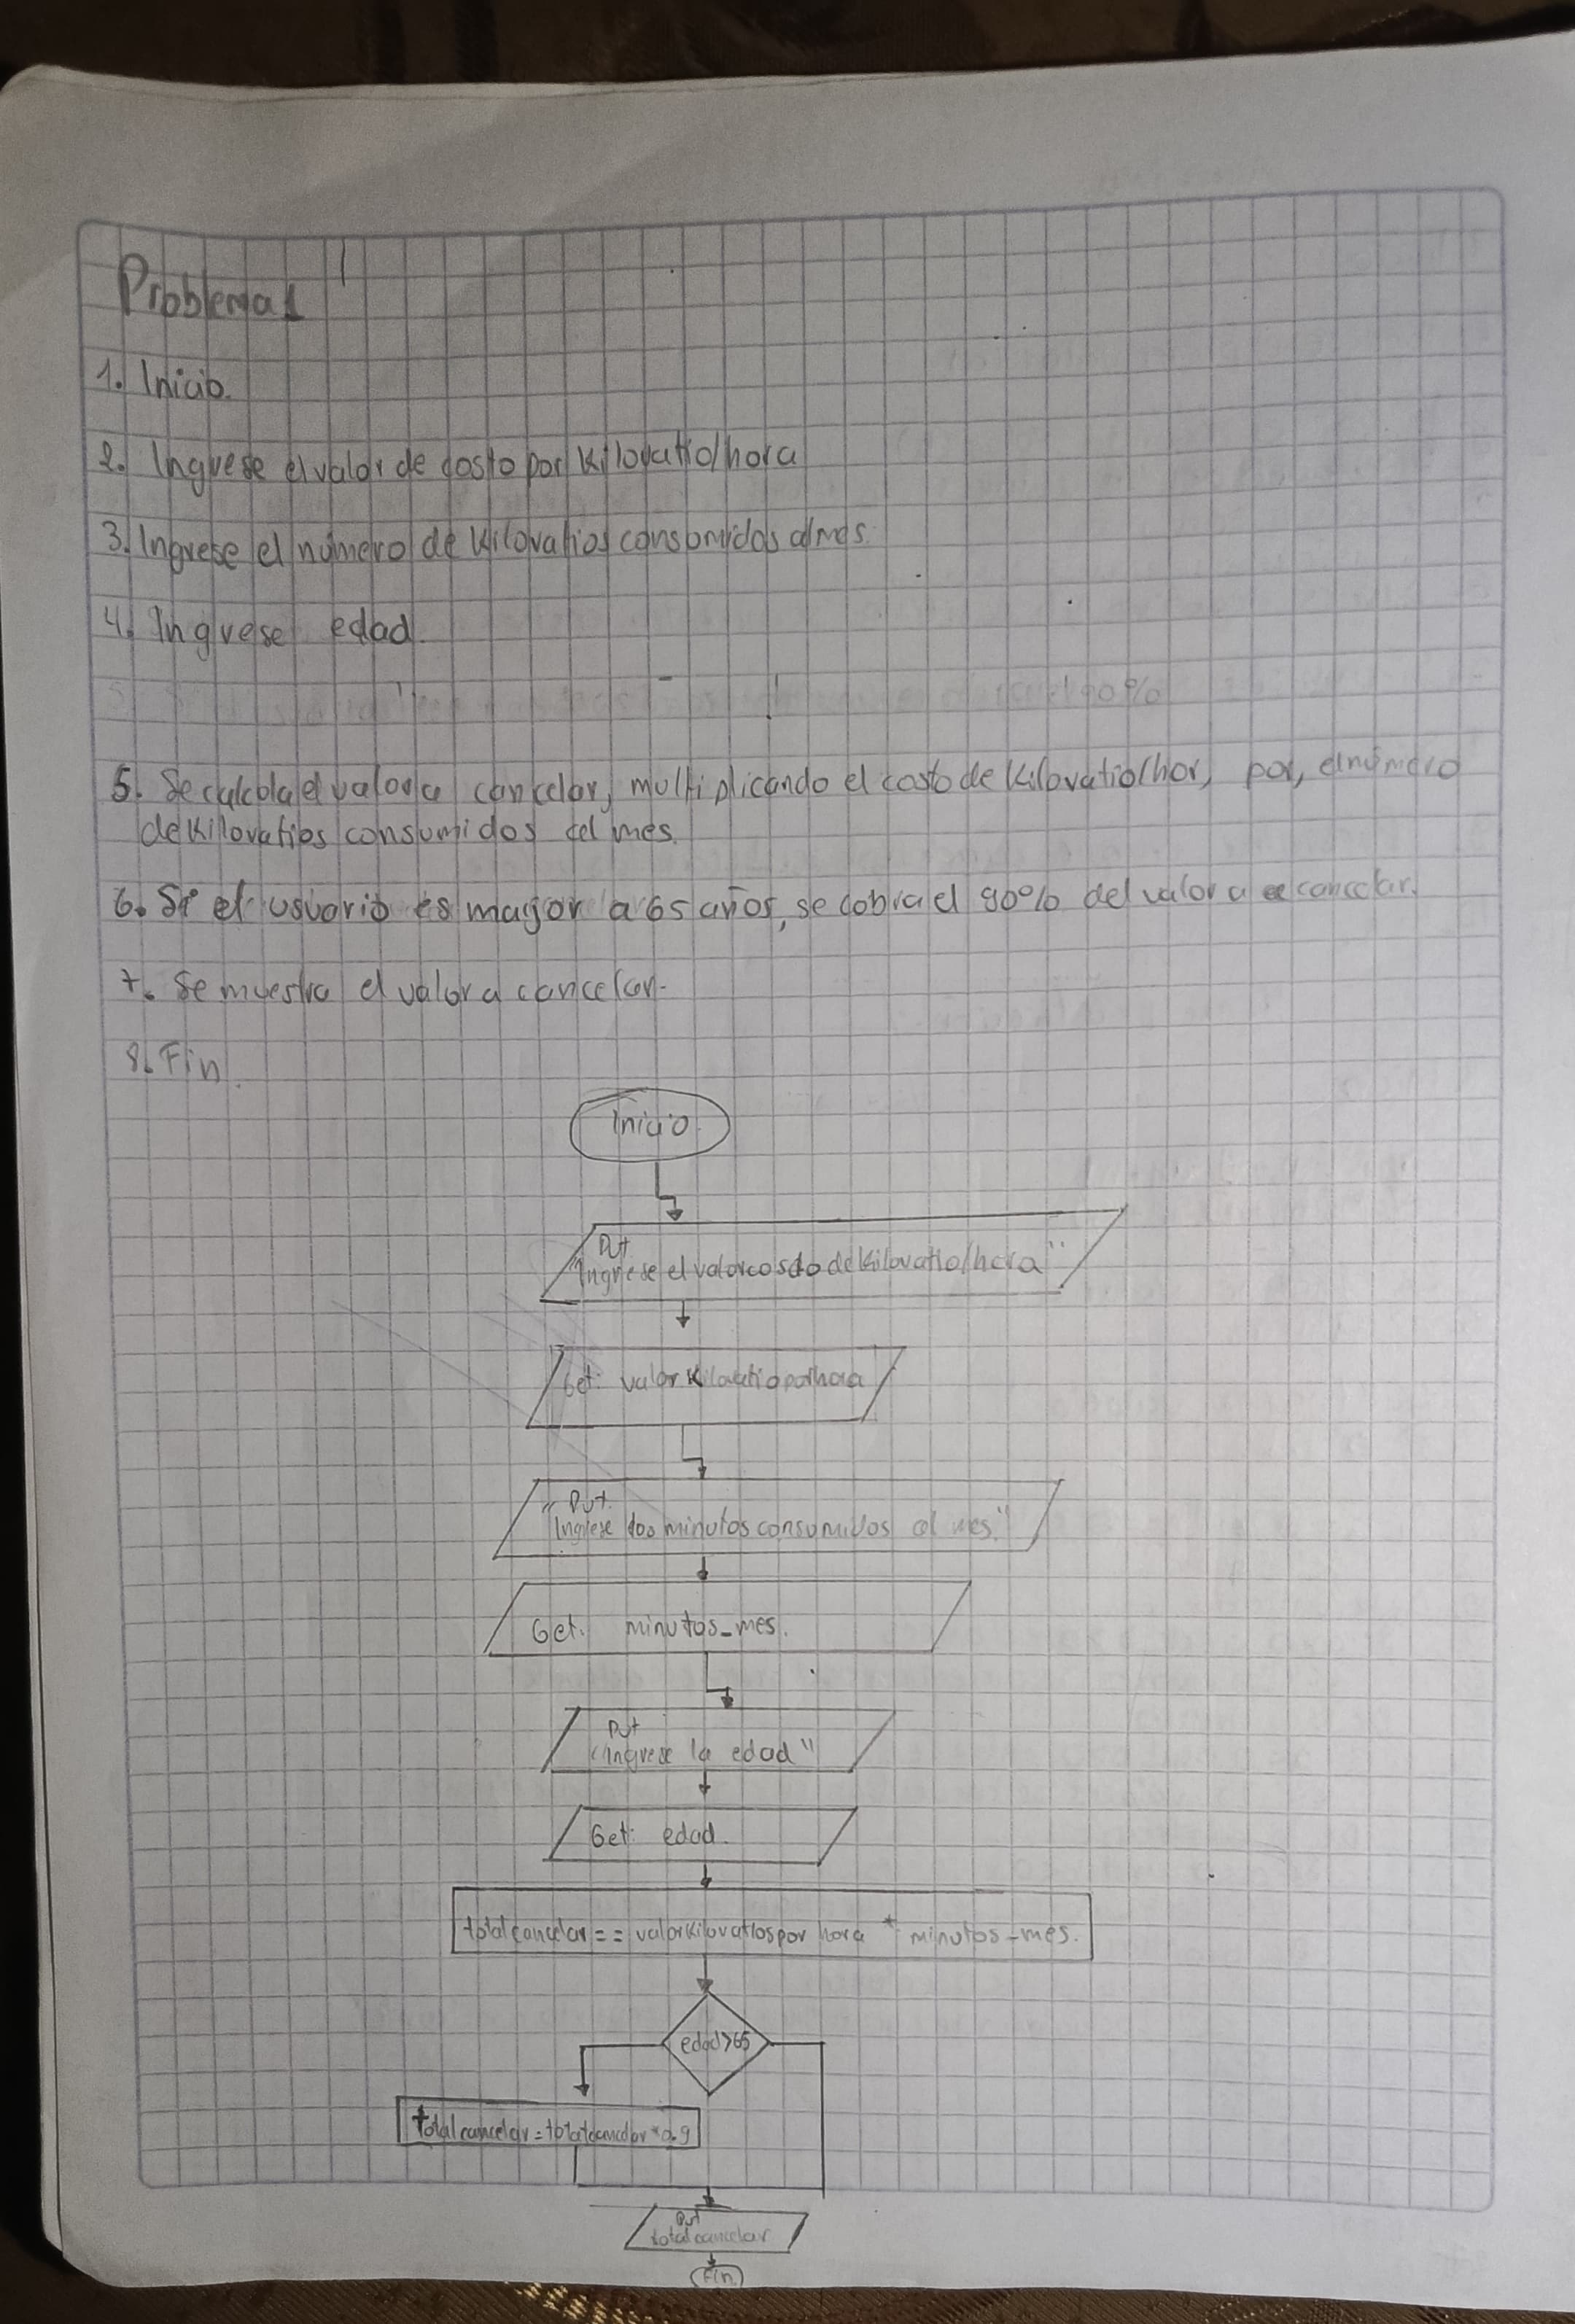 Problema 1
1. Inicio.
2. Ingrese el valor de costo por Kilovatio/hora
3. Ingrese el número de Kilovatios consumidos al mes.
4. Ingrese edad.
90%
5. Se calcula el valor a cancelar, multiplicando el costo de Kilovatio/hor, por, el número
de Kilovatios consumidos al mes.
6. Si el usuario es mayor a 65 años, se cobra el 90% del valor a cancelar.
7. Se muestra el valor a cancelar.
8. Fin.
Inicio
Put
"Ingrese el valor costo de kilovatio/hora"
Get: valorKilovatioporhora
Put
"Ingrese los minutos consumidos al mes."
Get: minutos_mes.
Put
"Ingrese la edad"
Get: edad.
totalcancelar == valorkilovatiosporhora * minutos_mes.
edad>65
totalcancelar = totalcancelar * 0.9
Put
totalcancelar
Fin